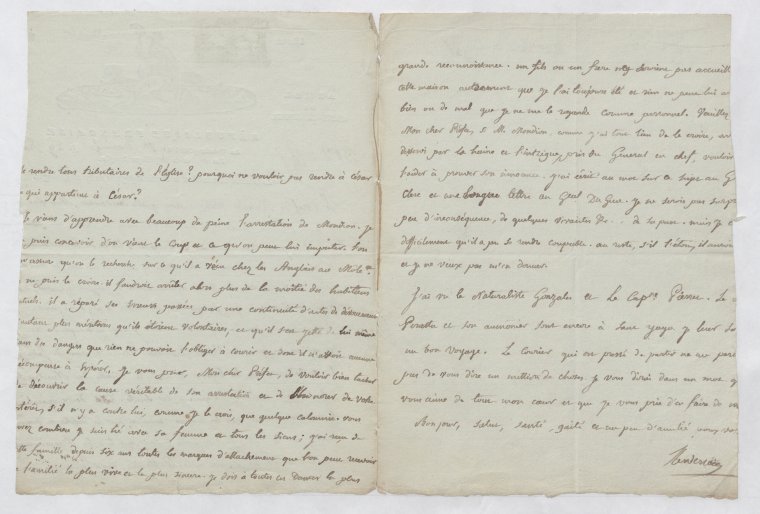 rendre tous tributaires de l'Eglise? pourquoi ne vouloir pas rendre à César
qui appartient à César?
Je viens d'apprendre avec beaucoup de peine l'arrestation de Mondion. Je
puis concevoir d'où vient le coup et ce qu'on peut lui imputer.
qu'on le recherche sur ce qu'il a vécu chez les Anglais au Mole
ne puis le croire. il faudroit arrêter alors plus de la moitié des habitans
il a réparé ses erreurs passées par une continuité d'actes de dévouement
d'autant plus méritoires qu'ils étoient volontaires, et qu'il s'en de lui même
dans des dangers que rien ne pouvoit l'obliger à courir et dont il n'avoit aucune
récompense à espérer. Je vous prie, Mon cher Préfet, de vouloir bien tacher
de découvrir la cause véritable de son arrestation et de l'honorer de votre
s'il n'y a contre lui, comme je le crois, que quelque calomnie. vous
savez combien je suis lié avec sa femme et tous les siens; j'ai reçu de
famille depuis six ans toutes les marques d'attachement que l'on peut recevoir
l'amitié la plus vive et la plus sincere. Je dois à toutes ces Dames la plus
grande reconnoissance. un fils ou un frère ne seroient pas accueillis
cette maison autrement que je l'ai toujours été et rien ne peut lui
bien ou de mal que je ne me le regarde comme personnel. Veuillez
Mon cher Préfet, si M. Mondion, comme j'ai tout lieu de le croire,
desservi par la haine et l'intrigue, près du Général en chef, vouloir
l'aider à prouver son innocence. j'ai écrit un mot sur ce sujet au G
Clerc et une longue lettre au Genl Du Gua. Je ne serois pas surpris
peu d'inconséquence, de quelques &c. de sa part. mais je
difficilement qu'il a pu se rendre coupable. au reste, s'il l'étoit, il
et je ne veux pas m'en douter.
J'ai vu le Naturaliste Gonzales et le Capne Pierret. Le
et son aumonier sont encore à Sant yago. je leur
un bon voyage. Le Courier qui est pressé de partir ne me permet
pas de vous dire un million de choses. Je vous dirai dans un mot que
vous aime de tout mon cœur et que je vous prie d'en faire de
Bonjour, salut, santé, gaité et un peu d'amitié